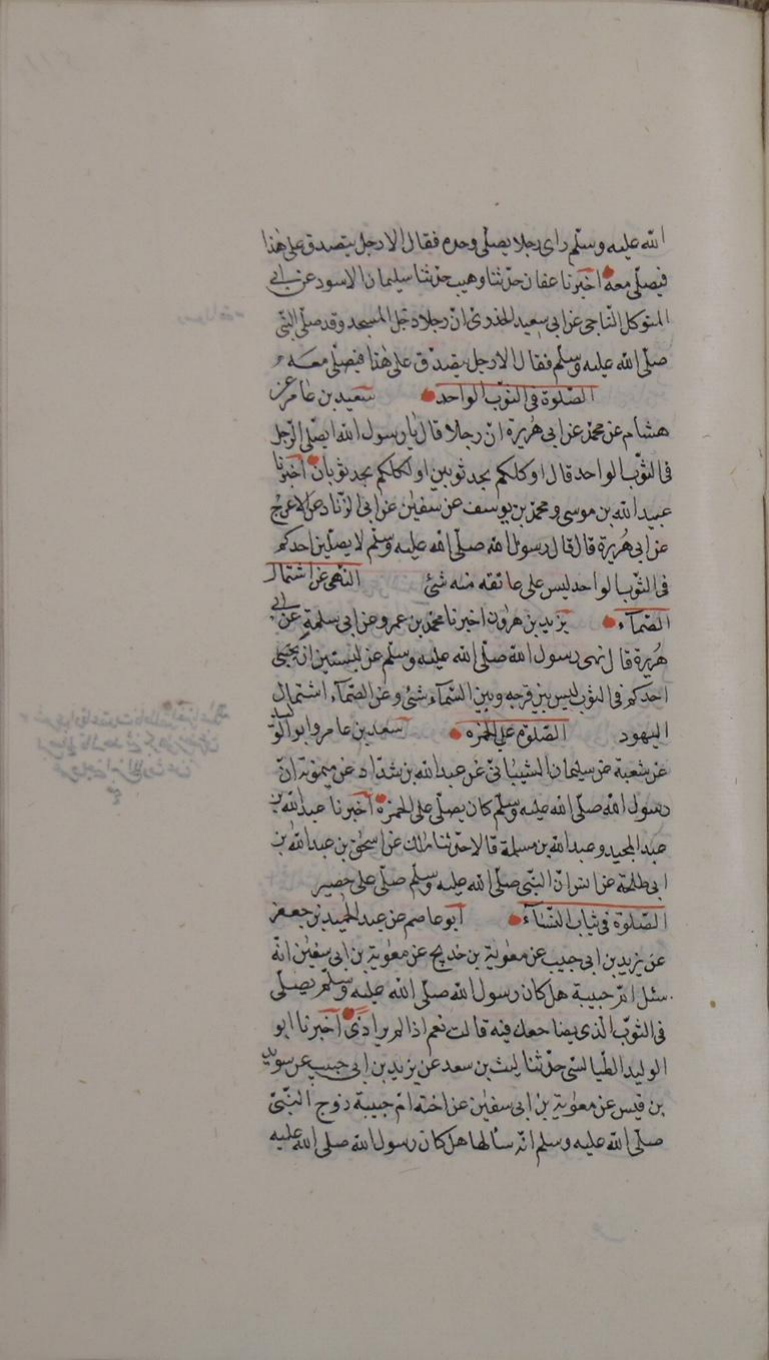 الله عليه وسلم راى رجلا يصلى وحده فقال الا رجل يتصدق على هذا
فيصلى معه اخبرنا عفان حدثنا وهيب حدثنا سليمان الاسود عن ابى
المتوكل الناجى عن ابى سعيد الخدرى ان رجلا دخل المسجد وقد صلى النبى
صلى الله عليه وسلم فقال الا رجل يتصدق على هذا فيصلى معه
الصلوة فى الثوب الواحد سعيد بن عامر عن
هشام عن محمد عن ابى هريرة ان رجلا قال يا رسول الله ايصلى الرجل
فى الثوب الواحد قال او كلكم يجد ثوبين او لكلكم يجد ثوبان اخبرنا
عبيد الله بن موسى ومحمد بن يوسف عن سفين عن ابى الزناد عن الاعرج
عن ابى هريرة قال قال رسول الله صلى الله عليه وسلم لا يصلين احدكم
فى الثوب الواحد ليس على عاتقه منه شئ النهى عن اشتمال
الصماء يزيد بن هرون اخبرنا محمد بن عمرو عن ابى سلمة عن ابى
هريرة قال نهى رسول الله صلى الله عليه وسلم عن لبستين ان يحتبى
احدكم فى الثوب ليس بين فرجه وبين السماء شئ وعن الصماء اشتمال
اليهود الصلوة على الخمرة سعيد بن عامر وابو الوليد
عن شعبة عن سليمان الشيبانى عن عبد الله بن شداد عن ميمونة ان
رسول الله صلى الله عليه وسلم كان يصلى على الخمرة اخبرنا عبيد الله بن
عبد المجيد وعبد الله بن مسلمة قالا حدثنا مالك عن اسحق بن عبد الله بن
ابى طلحة عن انس ان النبى صلى الله عليه وسلم صلى على حصير
الصلوة فى ثياب النساء ابو عاصم عن عبد الحميد بن جعفر
عن يزيد بن ابى حبيب عن معوية بن خديج عن معوية بن ابى سفين انه
سئل ام حبيبة هل كان رسول الله صلى الله عليه وسلم يصلى
فى الثوب الذى يضاجعك فيه قالت نعم اذا لم ير اذى اخبرنا ابو
الوليد الطيالسى حدثنا ليث بن سعد عن يزيد بن ابى حبيب عن سويد
بن قيس عن معوية بن ابى سفين عن اخته ام حبيبة زوج النبى
صلى الله عليه وسلم انه سالها هل كان رسول الله صلى الله عليه